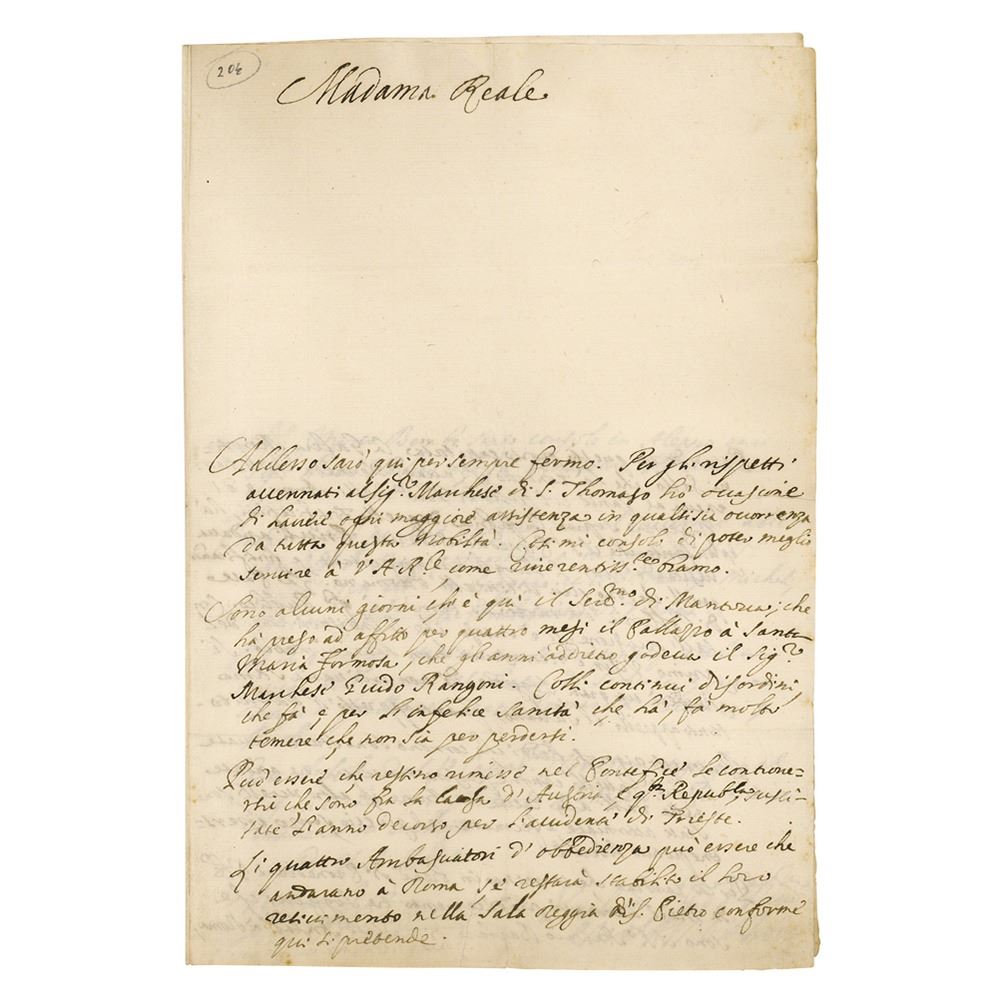 206
Madama Reale
Addesso sarò qui per sempre fermo. Per gli rispetti
accennati al Sig.r Marchese di S. Thomaso hò occasione
di havere ogni maggiore assistenza in qualsisia occorrenza
da tutta questa Nobiltà. Così mi consolo di poter meglio
servire à V.A.R.le, come riverentiss.te bramo.
Sono alcuni giorni ch'è quì il Ser.mo di Mantova, che
hà preso ad affitto per quattro mesi il Pallazzo à Santa
Maria Formosa, che gl'anni addietro godeva il Sig.r
Marchese Guido Rangoni. Colli continui disordini,
che fà, e per l'infelice sanità che hà, fà molto
temere che non sia per perdersi.
Può essere che restino rimesse nel Pontefice le controve=
rsie che sono frà la Casa d'Austria, e q.sta Republ.a susci=
tate l'anno decorso per l'accidente di Trieste.
Li quattro Ambasciatori d'obbedienza può essere che
andarano à Roma, se restarà stabilito il loro
ricivimento nella Sala Reggia di S. Pietro conforme
qui si pretende.